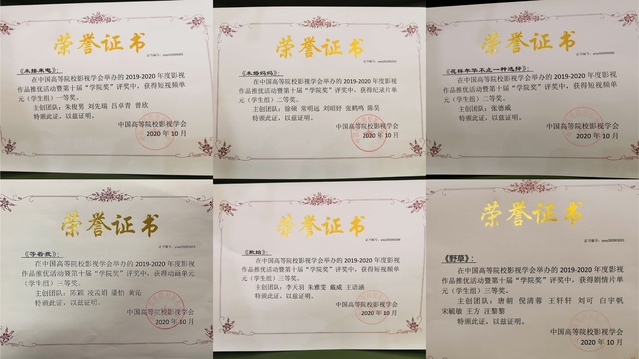 荣誉证书
《未接来电》:
在中国高等院校影视学会举办的 2019-2020 年度影视
作品推优活动暨第十届“学院奖”评奖中，获得短视频单
元（学生组）一等奖。
主创团队：朱俊男 刘先瑞 吕卓青 曾欣
特颁此证，以兹证明。
中国高等院校影视学会
2020 年 10 月
荣誉证书
《未婚妈妈》:
在中国高等院校影视学会举办的 2019-2020 年度影视
作品推优活动暨第十届“学院奖”评奖中，获得纪录片单
元（学生组）二等奖。
主创团队：徐硕 常明远 刘昭妤 张鹤鸣 陈昊
特颁此证，以兹证明。
中国高等院校影视学会
2020 年 10 月
荣誉证书
《花样年华不止一种选择》:
在中国高等院校影视学会举办的 2019-2020 年度影视
作品推优活动暨第十届“学院奖”评奖中，获得短视频单
元（学生组）二等奖。
主创团队：张德威
特颁此证，以兹证明。
中国高等院校影视学会
2020 年 10 月
荣誉证书
在中国高等院校影视学会举办的 2019-2020 年度影视
作品推优活动暨第十届“学院奖”评奖中，获得动画单元
（学生组）三等奖。
主创团队：陈颖 凌孟娟 潘怡 黄沁
特颁此证，以兹证明。
中国高等院校影视学会
2020 年 10 月
荣誉证书
在中国高等院校影视学会举办的 2019-2020 年度影视
作品推优活动暨第十届“学院奖”评奖中，获得短视频单
元（学生组）三等奖。
主创团队：李天羽 朱雅雯 戴威 王语涵
特颁此证，以兹证明。
中国高等院校影视学会
2020 年 10 月
荣誉证书
《野草》:
在中国高等院校影视学会举办的 2019-2020 年度影视
作品推优活动暨第十届“学院奖”评奖中，获得剧情片单
元（学生组）三等奖。
主创团队：唐朝 倪清蓉 王轩轩 刘可 白宇帆
宋毓敏 王方 汪黎黎
特颁此证，以兹证明。
中国高等院校影视学会
2020 年 10 月